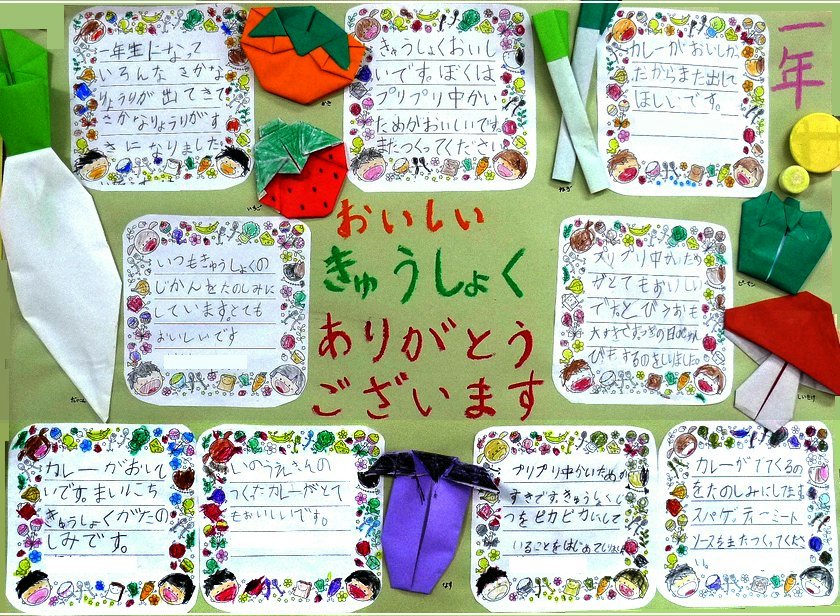 一年
一年生になって
いろんな さかな
りょうりが 出てきて
さかなりょうりがす
きになりました。
かき
きゅうしょくおいし
いです。ぼくは
プリプリ中かい
ためがおいしいです。
またつくってください
ねぎ
カレーがおいしか
たからまた出して
ほしいです。
いちご
おいしい
きゅうしょく
ありがとう
ございます
いつもきゅうしょくの
じかんをたのしみに
していますとても
おいしいです
プリプリ中かいため
がとてもおいしい
ピーマン
しいたけ
だいこん
カレーがおいし
いです。まいにち
きゅうしょくがたの
しみです。
いのうえさんの
つくたカレーがとて
もおいしいです。
なす
プリプリ中かいためが
すきです。きゅうしょくし
つをピカピカにして
いることをはじめて
カレーがでてくるの
をたのしみにしてます
スパゲティーミート
ソースをまたつくってくださ
い。